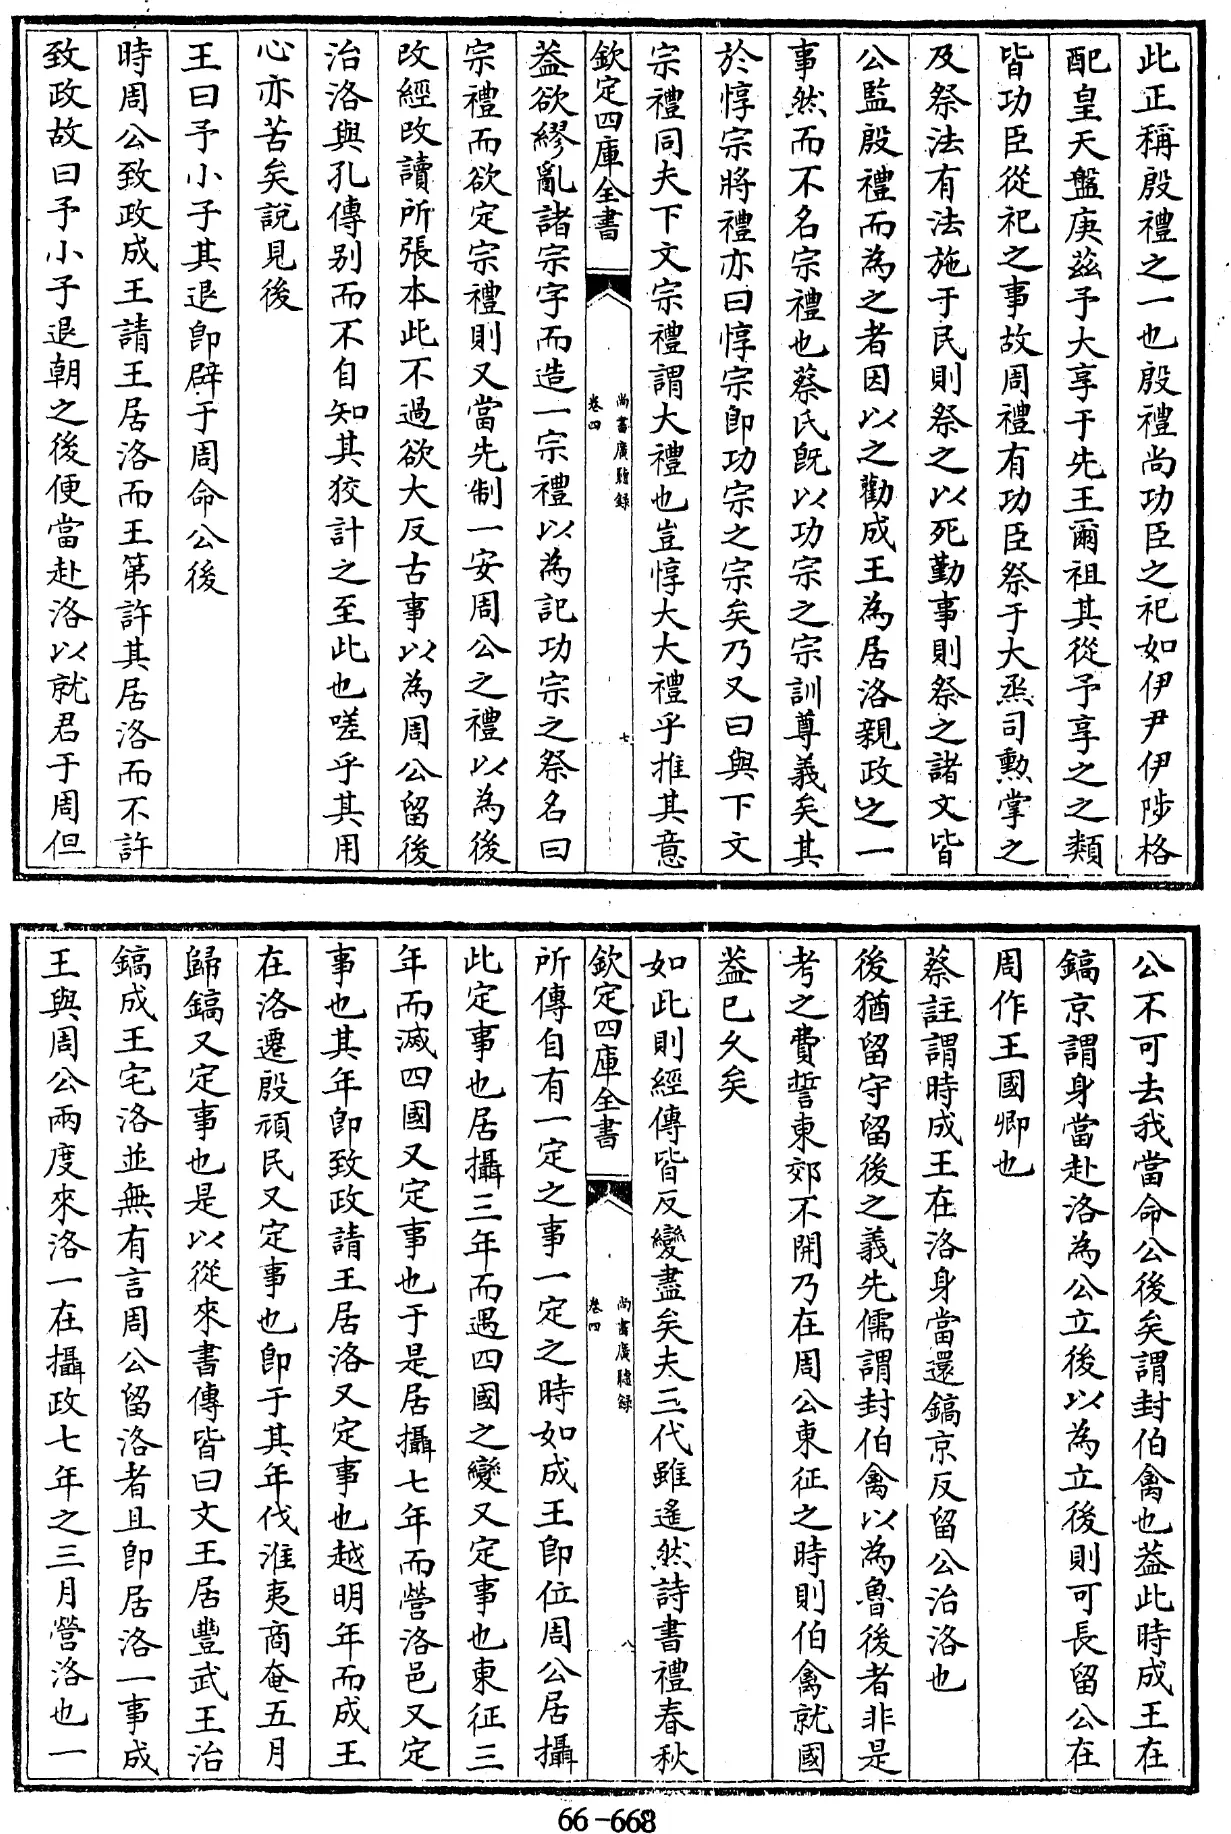 此正稱殷禮之一也殷禮尚功臣之祀如伊尹伊陟格
配皇天盤庚兹予大享于先王爾祖其從予享之之類
皆功臣從祀之事故周禮有功臣祭于大烝司勲掌之
及祭法有法施于民則祭之以死勤事則祭之諸文皆
公監殷禮而為之者因以之勸成王為居洛親政之一
事然而不名宗禮也蔡氏旣以功宗之宗訓尊義矣其
於惇宗將禮亦曰惇宗即功宗之宗矣乃又曰與下文
宗禮同夫下文宗禮謂大禮也豈惇大大禮乎推其意
欽定四庫全書
尚書廣聽錄
卷四
七
葢欲繆亂諸宗字而造一宗禮以為記功宗之祭名曰
宗禮而欲定宗禮則又當先制一安周公之禮以為後
改經改讀所張本此不過欲大反古事以為周公留後
治洛與孔傳别而不自知其狡計之至此也嗟乎其用
心亦苦矣說見後
王曰予小子其退卽辟于周命公後
時周公致政成王請王居洛而王第許其居洛而不許
致政故曰予小子退朝之後便當赴洛以就君于周但
公不可去我當命公後矣謂封伯禽也葢此時成王在
鎬京謂身當赴洛為公立後以為立後則可長留公在
周作王國卿也
蔡註謂時成王在洛身當還鎬京反留公治洛也
後猶留守留後之義先儒謂封伯禽以為魯後者非是
考之費誓東郊不開乃在周公東征之時則伯禽就國
葢已久矣
如此則經傳皆反變盡矣夫三代雖遙然詩書禮春秋
欽定四庫全書
尚書廣聽錄
卷四
八
所傳自有一定之事一定之時如成王卽位周公居攝
此定事也居攝三年而遇四國之變又定事也東征三
年而滅四國又定事也于是居攝七年而營洛邑又定
事也其年卽致政請王居洛又定事也越明年而成王
在洛遷殷頑民又定事也卽于其年伐淮夷商奄五月
歸鎬又定事也是以從來書傳皆曰文王居豐武王治
鎬成王宅洛並無有言周公留洛者且卽居洛一事成
王與周公兩度來洛一在攝政七年之三月營洛也一
66-668